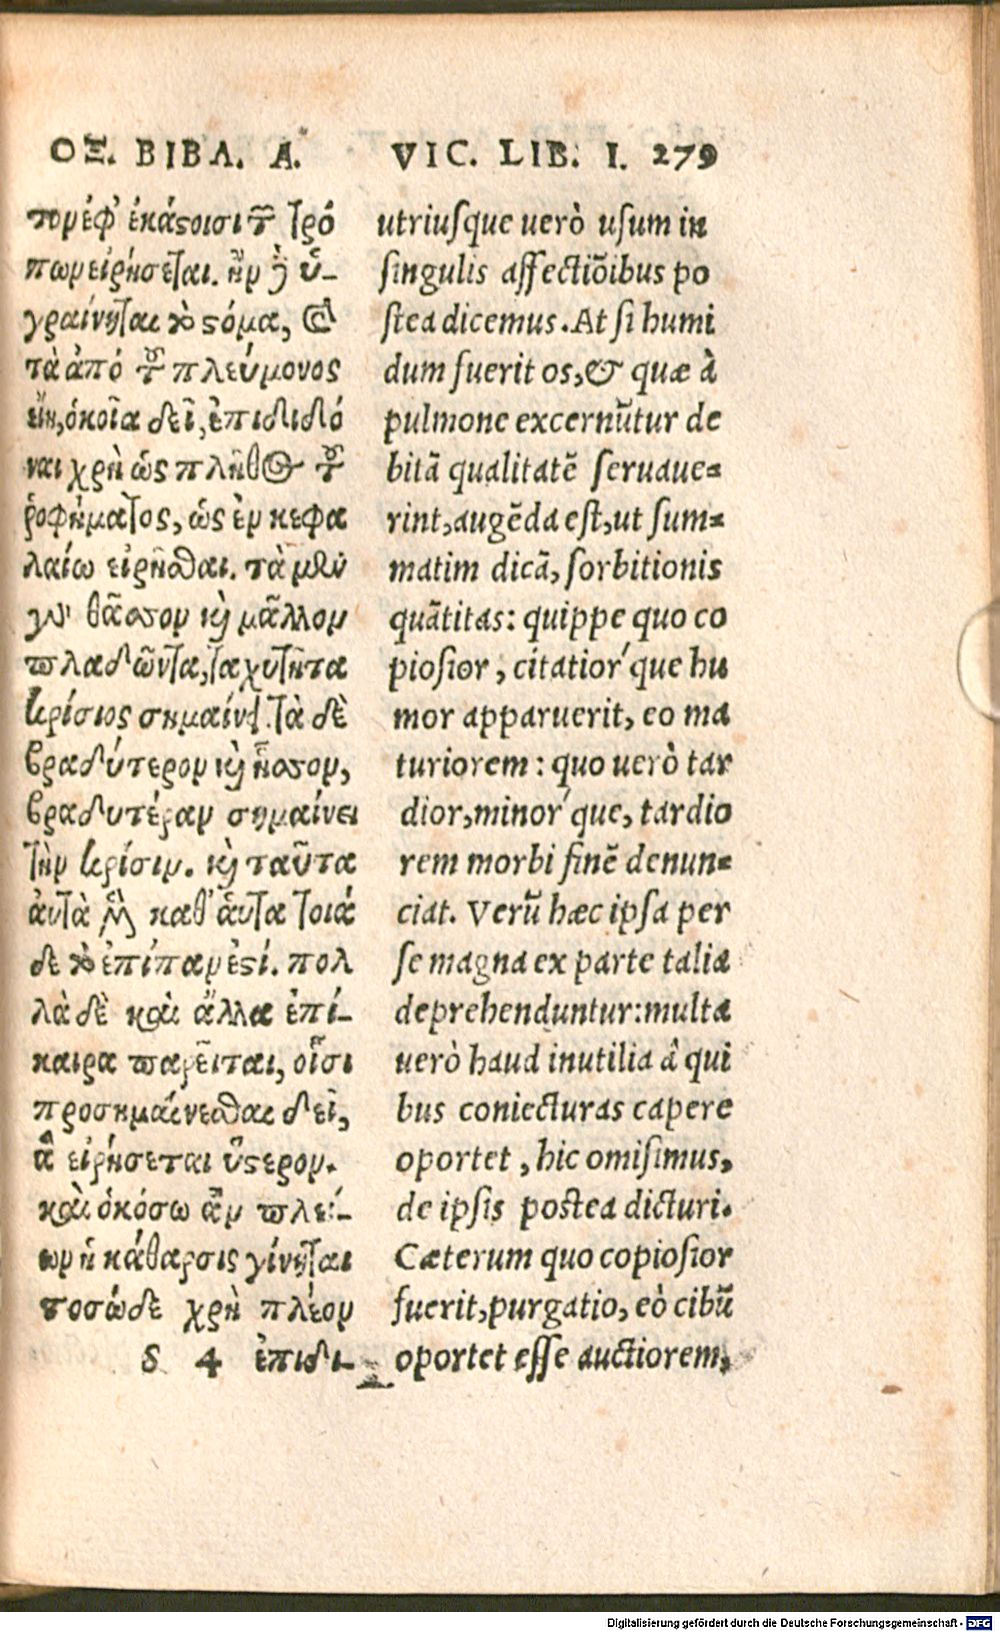 ΟΞ. ΒΙΒΛ. Α.
τον ἐφ' ἑκάστοισι τῶν τρό
πων εἰρήσεται. ἢν γὰρ ὑ-
γραίνηται τὸ στόμα, καὶ
τὰ ἀπὸ τοῦ πλεύμονος
ἔῃ, ὁκοῖα δεῖ, ἐπιδιδό
ναι χρὴ ὡς πλῆθος τοῦ
ῥοφήματος, ὡς ἐν κεφα
λαίῳ εἰρῆσθαι. τὰ μὲν
γὰρ θᾶσσον καὶ μᾶλλον
πλαδῶντα, ταχυτῆτα
κρίσιος σημαίνει. τὰ δὲ
βραδύτερον καὶ ἧσσον,
βραδυτέραν σημαίνει
τὴν κρίσιν. καὶ ταῦτα
αὐτὰ μὲν καθ' αὑτὰ τοιά
δε τὸ ἐπίπαν ἐστί. πολ
λὰ δὲ καὶ ἄλλα ἐπί-
καιρα παρεῖται, οἷσι
προσημαίνεσθαι δεῖ,
ἃ εἰρήσεται ὕστερον.
καὶ ὁκόσῳ ἂν πλεί-
ων ἡ κάθαρσις γίνηται
τοσῷδε χρὴ πλέον
S 4 ἐπιδι-
VIC. LIB. I. 279
utriusque verò usum in
singulis affectiõibus po
stea dicemus. At si humi
dum fuerit os, & quæ à
pulmone excernũtur de
bitã qualitatẽ seruaue=
rint, augẽda est, ut sum=
matim dicã, sorbitionis
quãtitas: quippe quo co
piosior, citatior´que hu
mor apparuerit, eo ma
turiorem: quo uerò tar
dior, minor´que, tardio
rem morbi finẽ denun=
ciat. Verũ hæc ipsa per
se magna ex parte talia
deprehenduntur: multa
uerò haud inutilia â qui
bus coniecturas capere
oportet, hic omisimus,
de ipsis postea dicturi.
Cæterum quo copiosior
fuerit, purgatio, eò cibũ
oportet esse auctiorem,
Digitalisierung gefördert durch die Deutsche Forschungsgemeinschaft - DFG